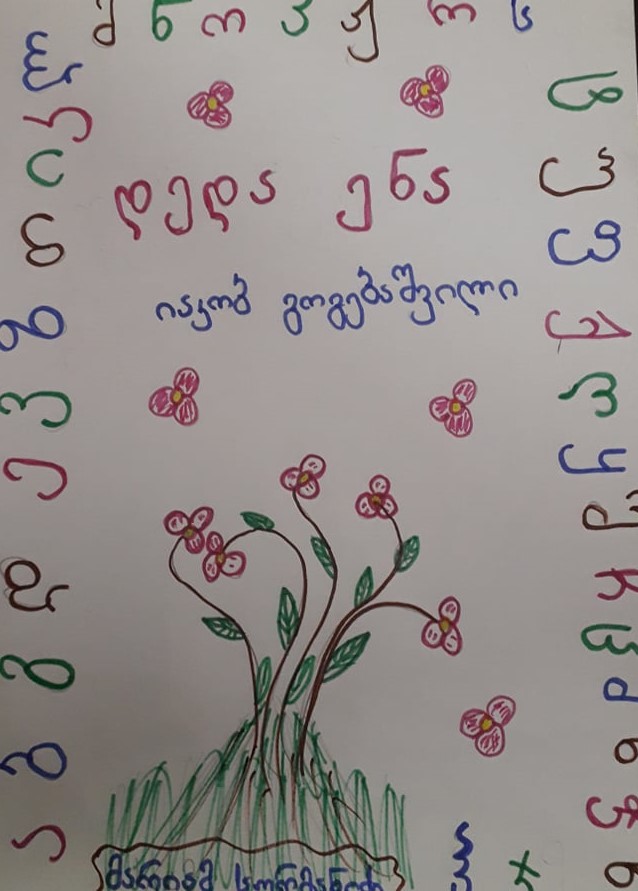 ა ბ გ დ ე ვ ზ თ ი კ ლ
მ ნ ო პ ჟ რ ს
ტ უ ფ ქ ღ ყ შ ჩ ც ძ წ ჭ ხ
ჯ ჰ
დედა ენა
იაკობ გოგებაშვილი
მარიამ